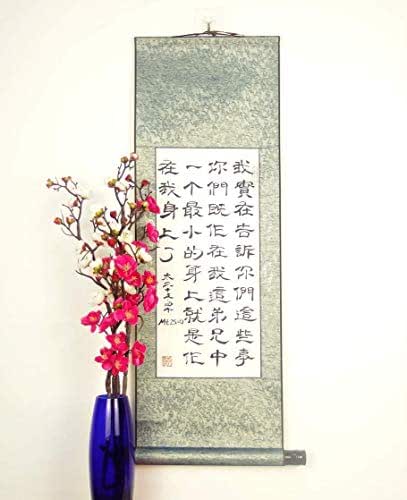 我實在告訴你們這些事
你們既作在我這弟兄中
一个最小的身上就是作
在我身上了
Mt.25:40